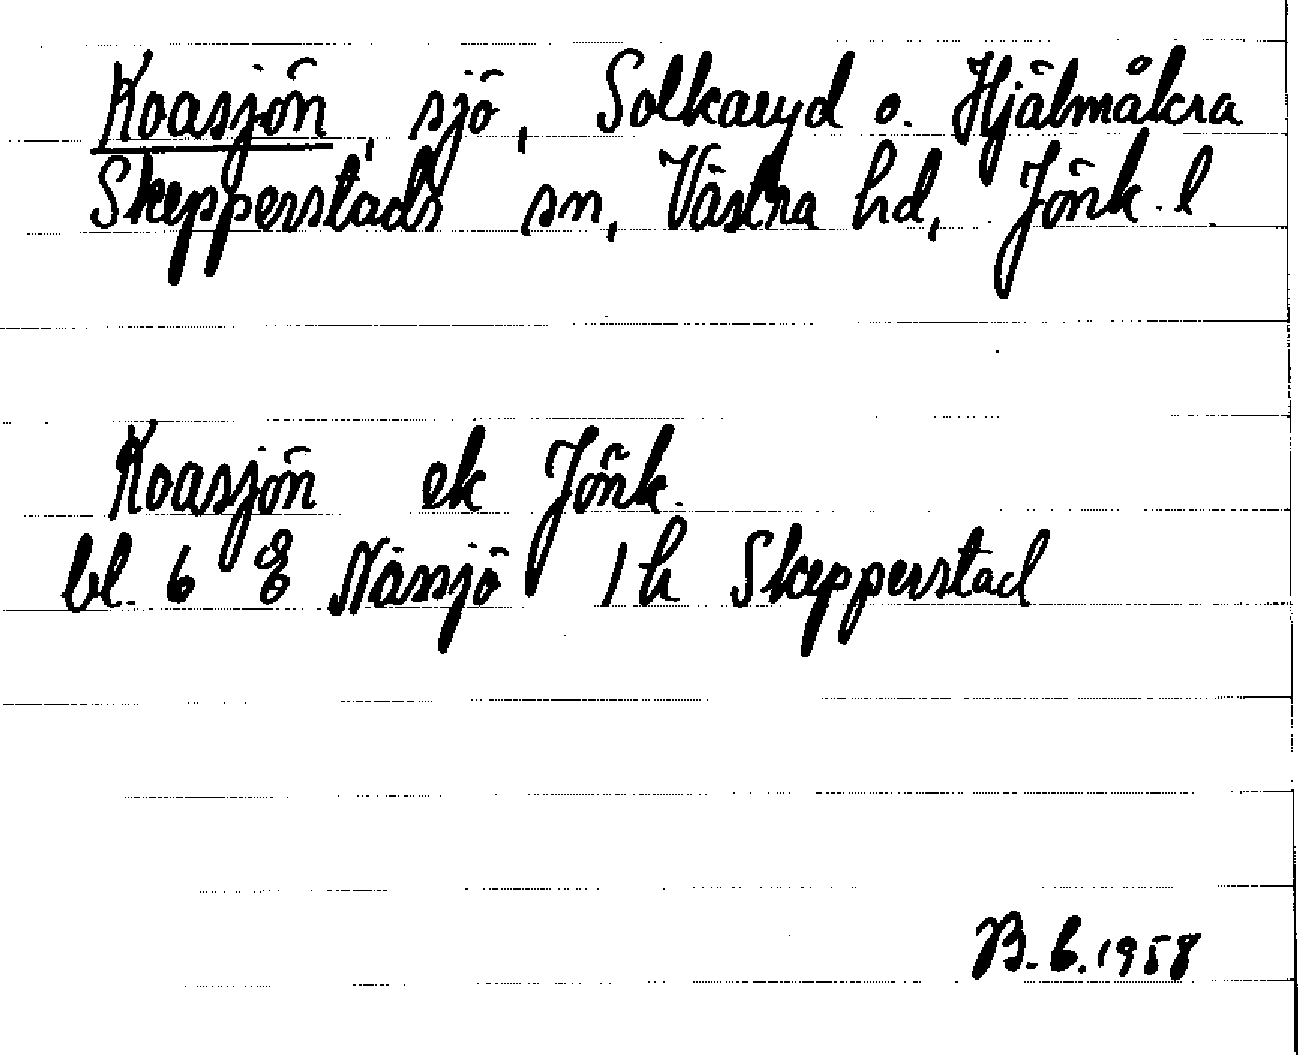 Koasjön, sjö, Solkaryd o. Hjälmåkra
Skepperstads sn, Västra hd, Jönk. l.
Koasjön ek Jönk.
bl. 6 Nässjö 1 h Skepperstad
B. 6. 1958